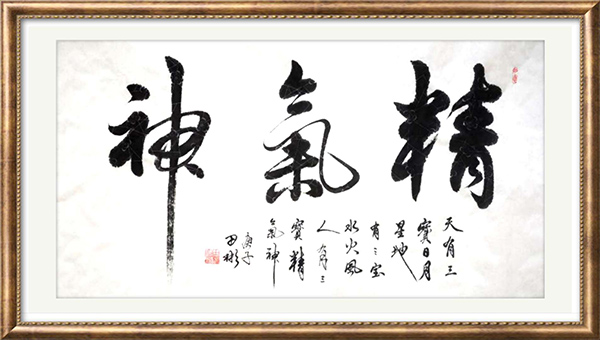 精氣神
天有三
寶日月
星地
有三宝
水火風
人有三
寶精
氣神
庚子
田彬